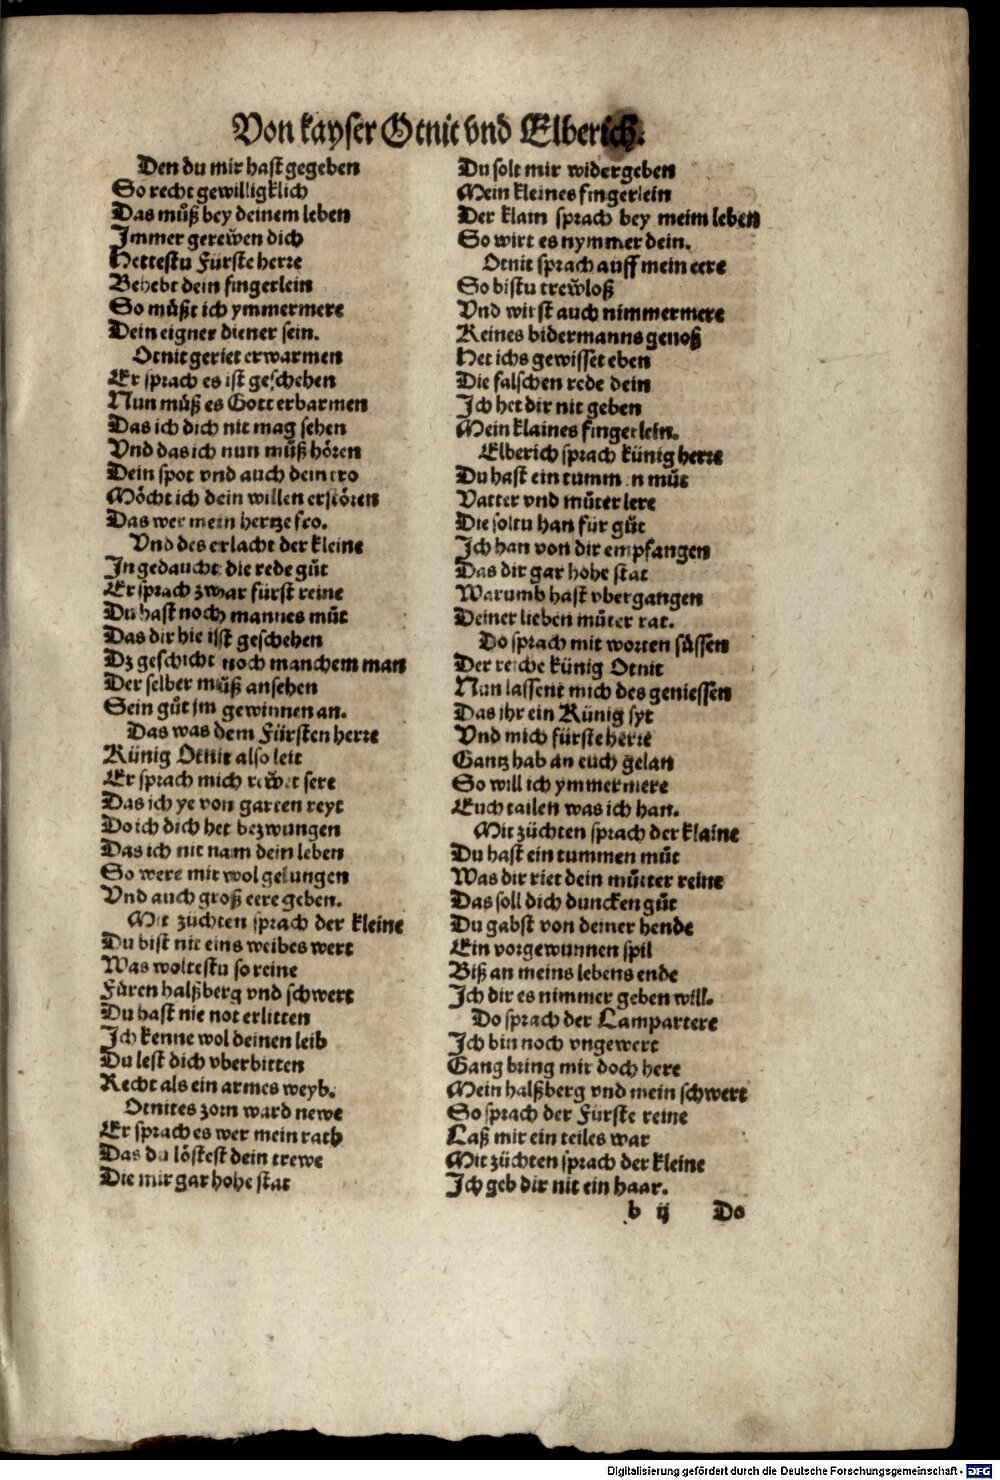 Von kayser Otnit vnd Elberich.
Den du mir hast gegeben
So recht gewilligklich
Das muͦß bey deinem leben
Immer gereẘen dich
Hettestu Fürste herre
Behebt dein fingerlein
So muͤßt ich ymmermere
Dein eigner diener sein.
Otnit geriet erwarmen
Er sprach es ist geschehen
Nun muͦß es Gott erbarmen
Das ich dich nit mag sehen
Vnd das ich nun muͦß hören
Dein spot vnd auch dein tro
Möcht ich dein willen erstören
Das wer mein hertze fro.
Vnd des erlacht der kleine
In gedaucht die rede guͦt
Er sprach zwar fürst reine
Du hast noch mannes muͦt
Das dir hie isst geschehen
Dz geschicht noch manchem man
Der selber muͦß ansehen
Sein guͦt im gewinnen an.
Das was dem Fürsten herre
Künig Otnit also leit
Er sprach mich reẘet sere
Das ich ye von garten reyt
Do ich dich het bezwungen
Das ich nit nam dein leben
So were mir wol gelungen
Vnd auch groß eere geben.
Mit züchten sprach der kleine
Du bist nit eins weibes wert
Was woltestu so reine
Füren halßberg vnd schwert
Du hast nie not erlitten
Ich kenne wol deinen leib
Du lest dich vberbitten
Recht als ein armes weyb.
Otnites zorn ward newe
Er sprach es wer mein rath
Das du löstest dein trewe
Die mir gar hohe stat
Du solt mir widergeben
Mein kleines fingerlein
Der klain sprach bey meim leben
So wirt es nymmer dein.
Otnit sprach auff mein eere
So bistu treẘloß
Vnd wirst auch nimmermere
Keines bidermanns genoß
Het ichs gewisset eben
Die falschen rede dein
Ich het dir nit geben
Mein klaines fingerlein.
Elberich sprach künig herre
Du hast ein tummen muͦt
Vatter vnd muͦter lere
Die soltu han für guͦt
Ich han von dir empfangen
Das dir gar hohe stat
Warumb hast vbergangen
Deiner lieben muͦter rat.
Do sprach mit worten süssen
Der reiche künig Otnit
Nun lassent mich des geniessen
Das ihr ein Künig syt
Vnd mich fürste herre
Gantz hab an euch gelan
So will ich ymmermere
Euch tailen was ich han.
Mit züchten sprach der klaine
Du hast ein tummen muͦt
Was dir riet dein muͦtter reine
Das soll dich duncken guͦt
Du gabst von deiner hende
Ein vorgewunnen spil
Biß an meins lebens ende
Ich dir es nimmer geben will.
Do sprach der Lampartere
Ich bin noch vngewert
Gang bring mir doch here
Mein halßberg vnd mein schwert
So sprach der Fürste reine
Laß mir ein teiles war
Mit züchten sprach der kleine
Ich geb dir nit ein haar.
b ij Do
Digitalisierung gefördert durch die Deutsche Forschungsgemeinschaft - DFG